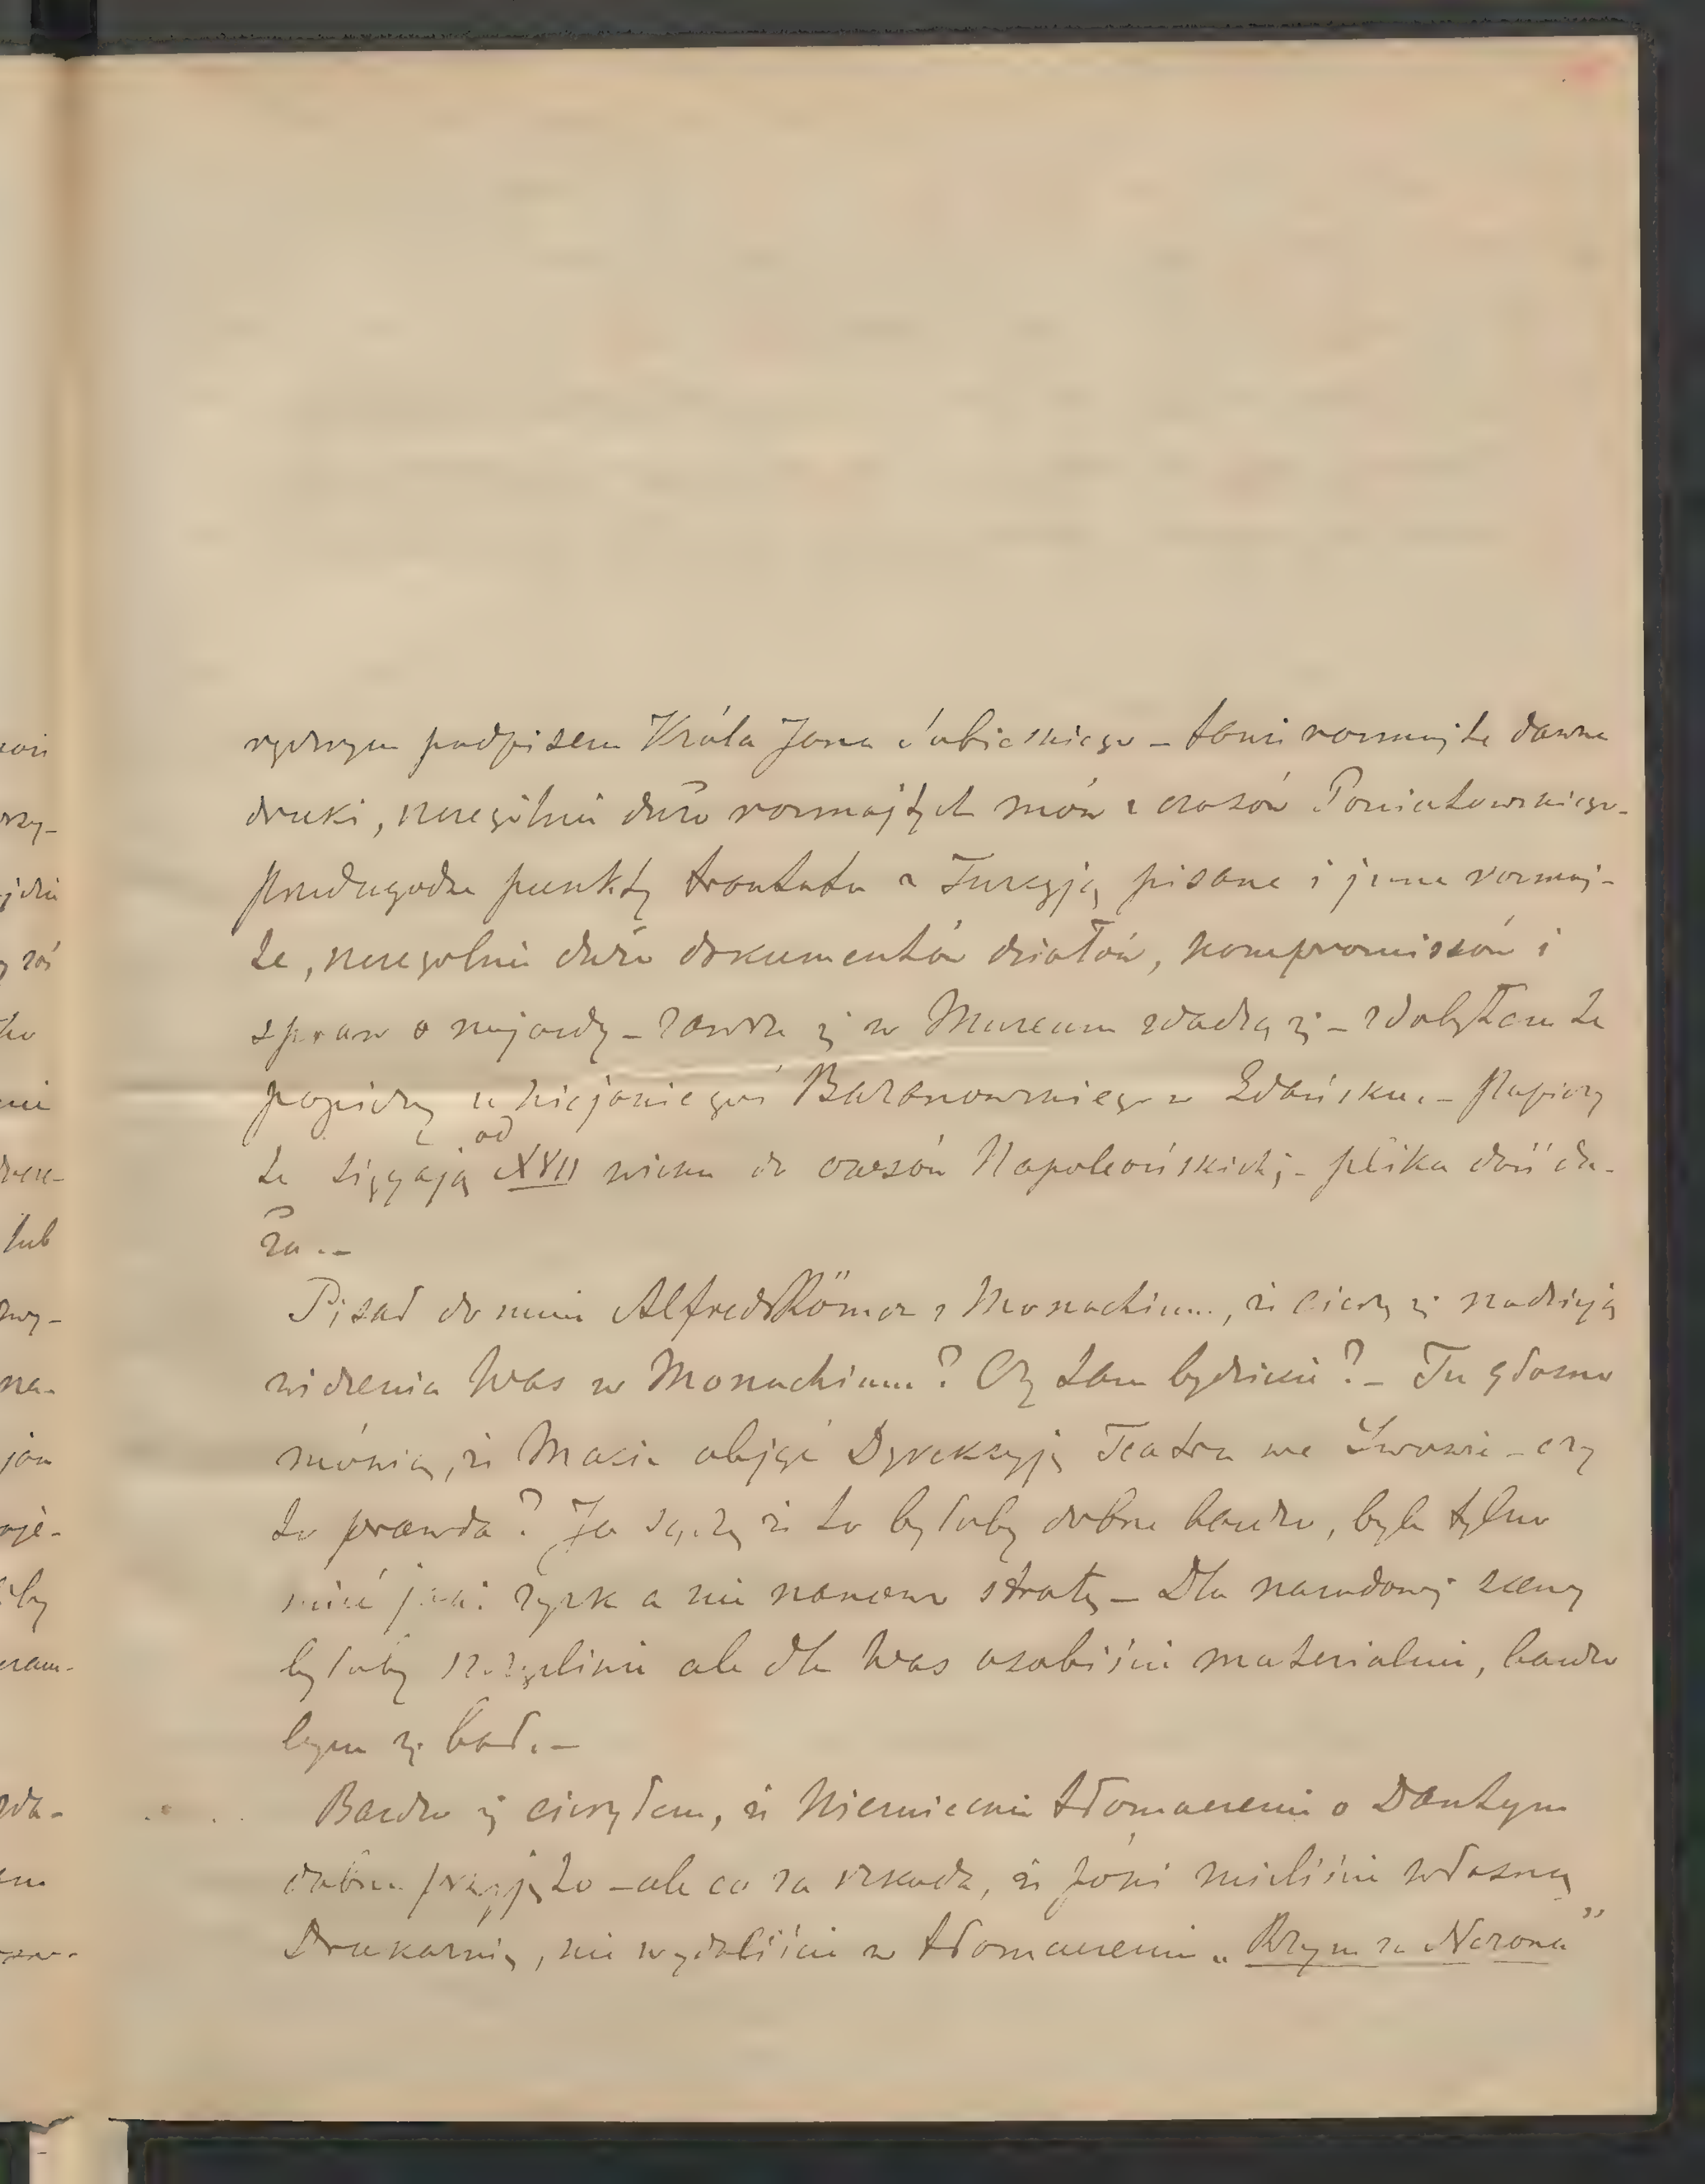 ręcznym podpisem Króla Jana Sobieskiego – także rozmaite dawne
druki, szczególnie dużo rozmaitych mów z czasów Poniatowskiego –
punkty traktatu z Turcyją pisane i inne rozmai-
te, szczególnie dużo dokumentów działów, kompromissów i
spraw o najazdy – zawsze się w Museum zdadzą się – zdobyłem te
papiery u niejakiegoś Baranowskiego w Gdańsku. – Papiery
te sięgają od XVII wieku do czasów Napoleońskich; – plika dość du-
ża. –
Pisał do mnie Alfred Römer z Monachium, że cieszy się nadzieją
widzenia Was w Monachium? Czy tam będziecie? – Tu głośno
mówią, że Macie objąć Dyrekcyję Teatru we Lwowie – czy
to prawda? Ja sądzę że to byłoby dobrze bardzo, byle tylko
mieć jaki zysk a nie stratę – Dla narodowej sceny
byłoby szczęśliwie ale dla Was osobiście materialnie, bardzo
bym się bał. –
Bardzo się cieszyłem, że Niemieckie tłomaczenie o Dantym
dobrze przyjęto – ale co za szkoda, że póki mieliście własną
Drukarnię, nie wydaliście w tłomaczeniu „Rzym za Nerona”